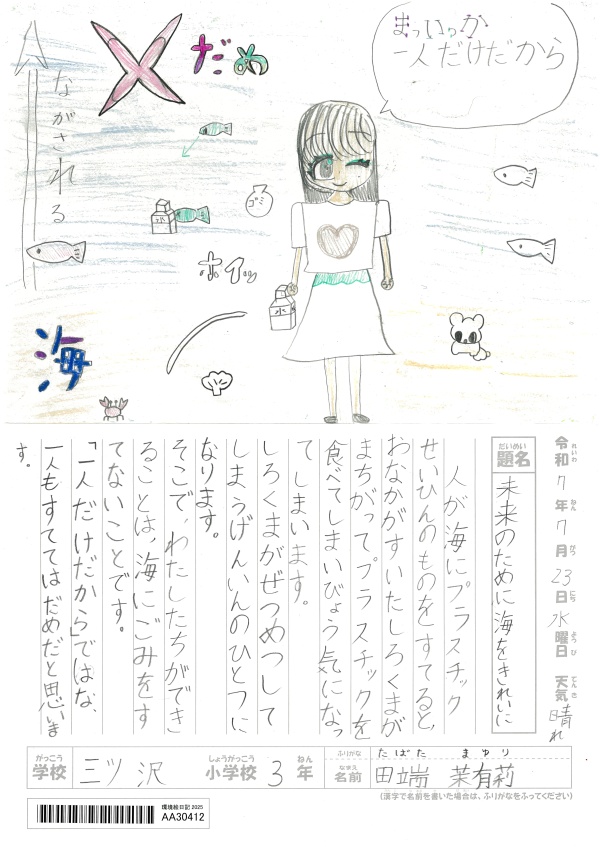 まっいっか
一人だけだから
だめ
ながされる
ゴミ
水
ポイッ
水
海
令和7年7月23日水曜日 天気晴れ
れいわ ねん がつ にち ようび てんき
だいめい
題名
未来のために海をきれいに
人が海にプラスチック
せいひんのものをすてると、
おなかがすいたしろくまが
まちがって。プラスチックを
食べてしまいびょう気になっ
てしまいます。
しろくまがぜつめつして
しまうげんいんのひとつに
なります。
そこで、わたしたちができ
ることは、海にごみをす
てないことです。
「一人だけだから」ではな、
一人もすててはだめだと思いま
す。
がっこう しょうがっこう ねん
学校 三ツ沢 小学校 3年
ふりがな たばた まゆり
なまえ
名前 田端 茉有莉
(漢字で名前を書いた場合は、ふりがなをふってください)
環境絵日記2025
AA30412